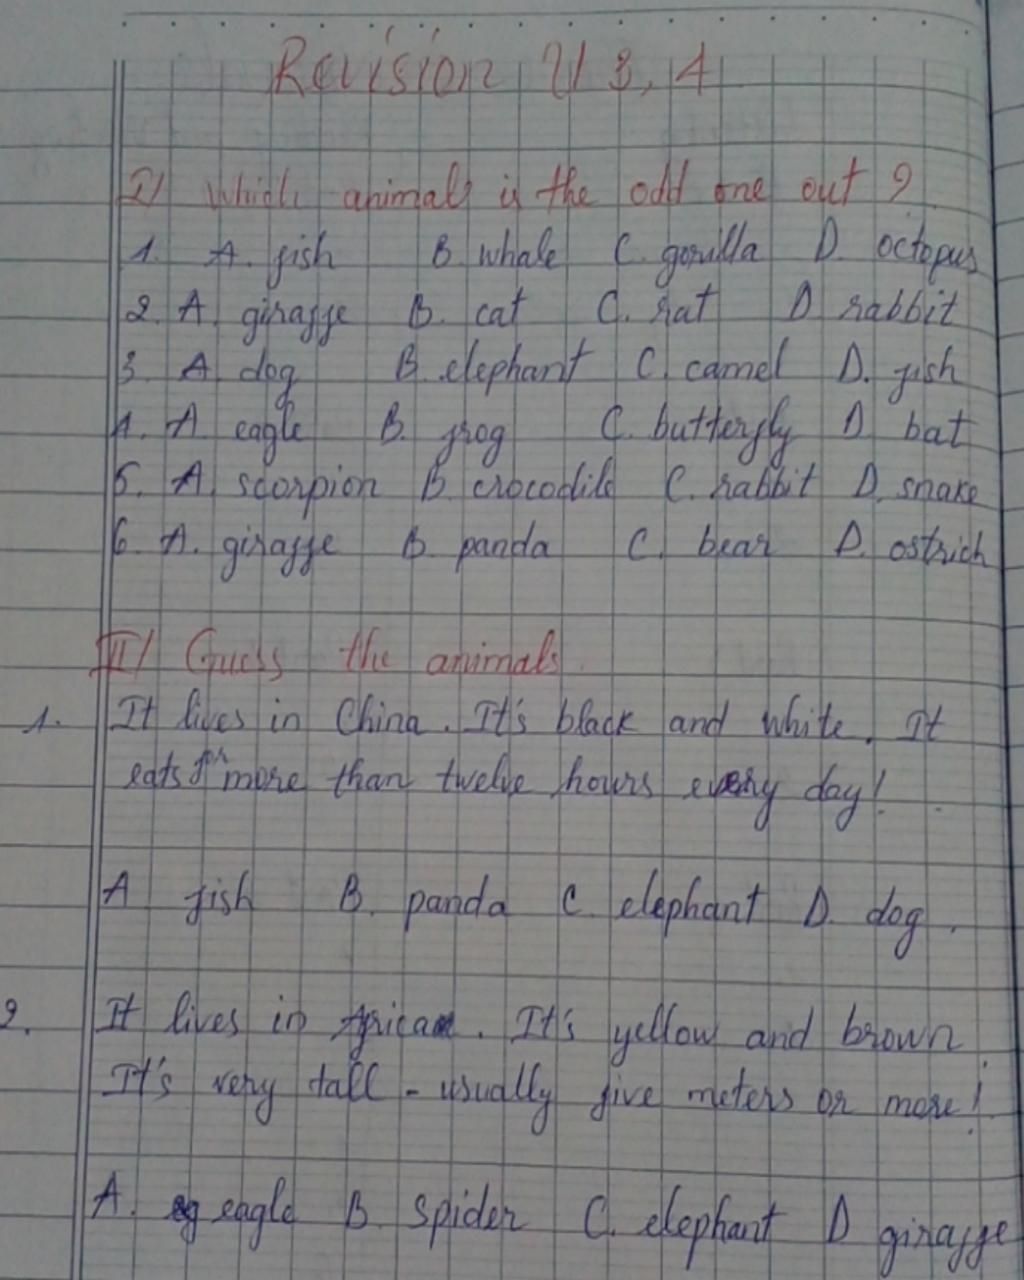 Revision U 3, 4
I/ Which animals is the odd one out ?
1. A. fish B. whale C. gorilla D. octopus
2. A. giraffe B. cat C. rat D rabbit
3. A. dog B. elephant C. camel D. fish
4. A. eagle B. frog C. butterfly D. bat
5. A. scorpion B. crocodile C. rabbit D. snake
6. A. giraffe B. panda C. bear D. ostrich
II/ Guess the animals.
1. It lives in China. It's black and white. It
eats for more than twelve hours every day!
A fish B. panda C. elephant D. dog.
2. It lives in Africa. It's yellow and brown.
It's very tall - usually five meters or more!
A. eagle B. spider C. elephant D giraffe